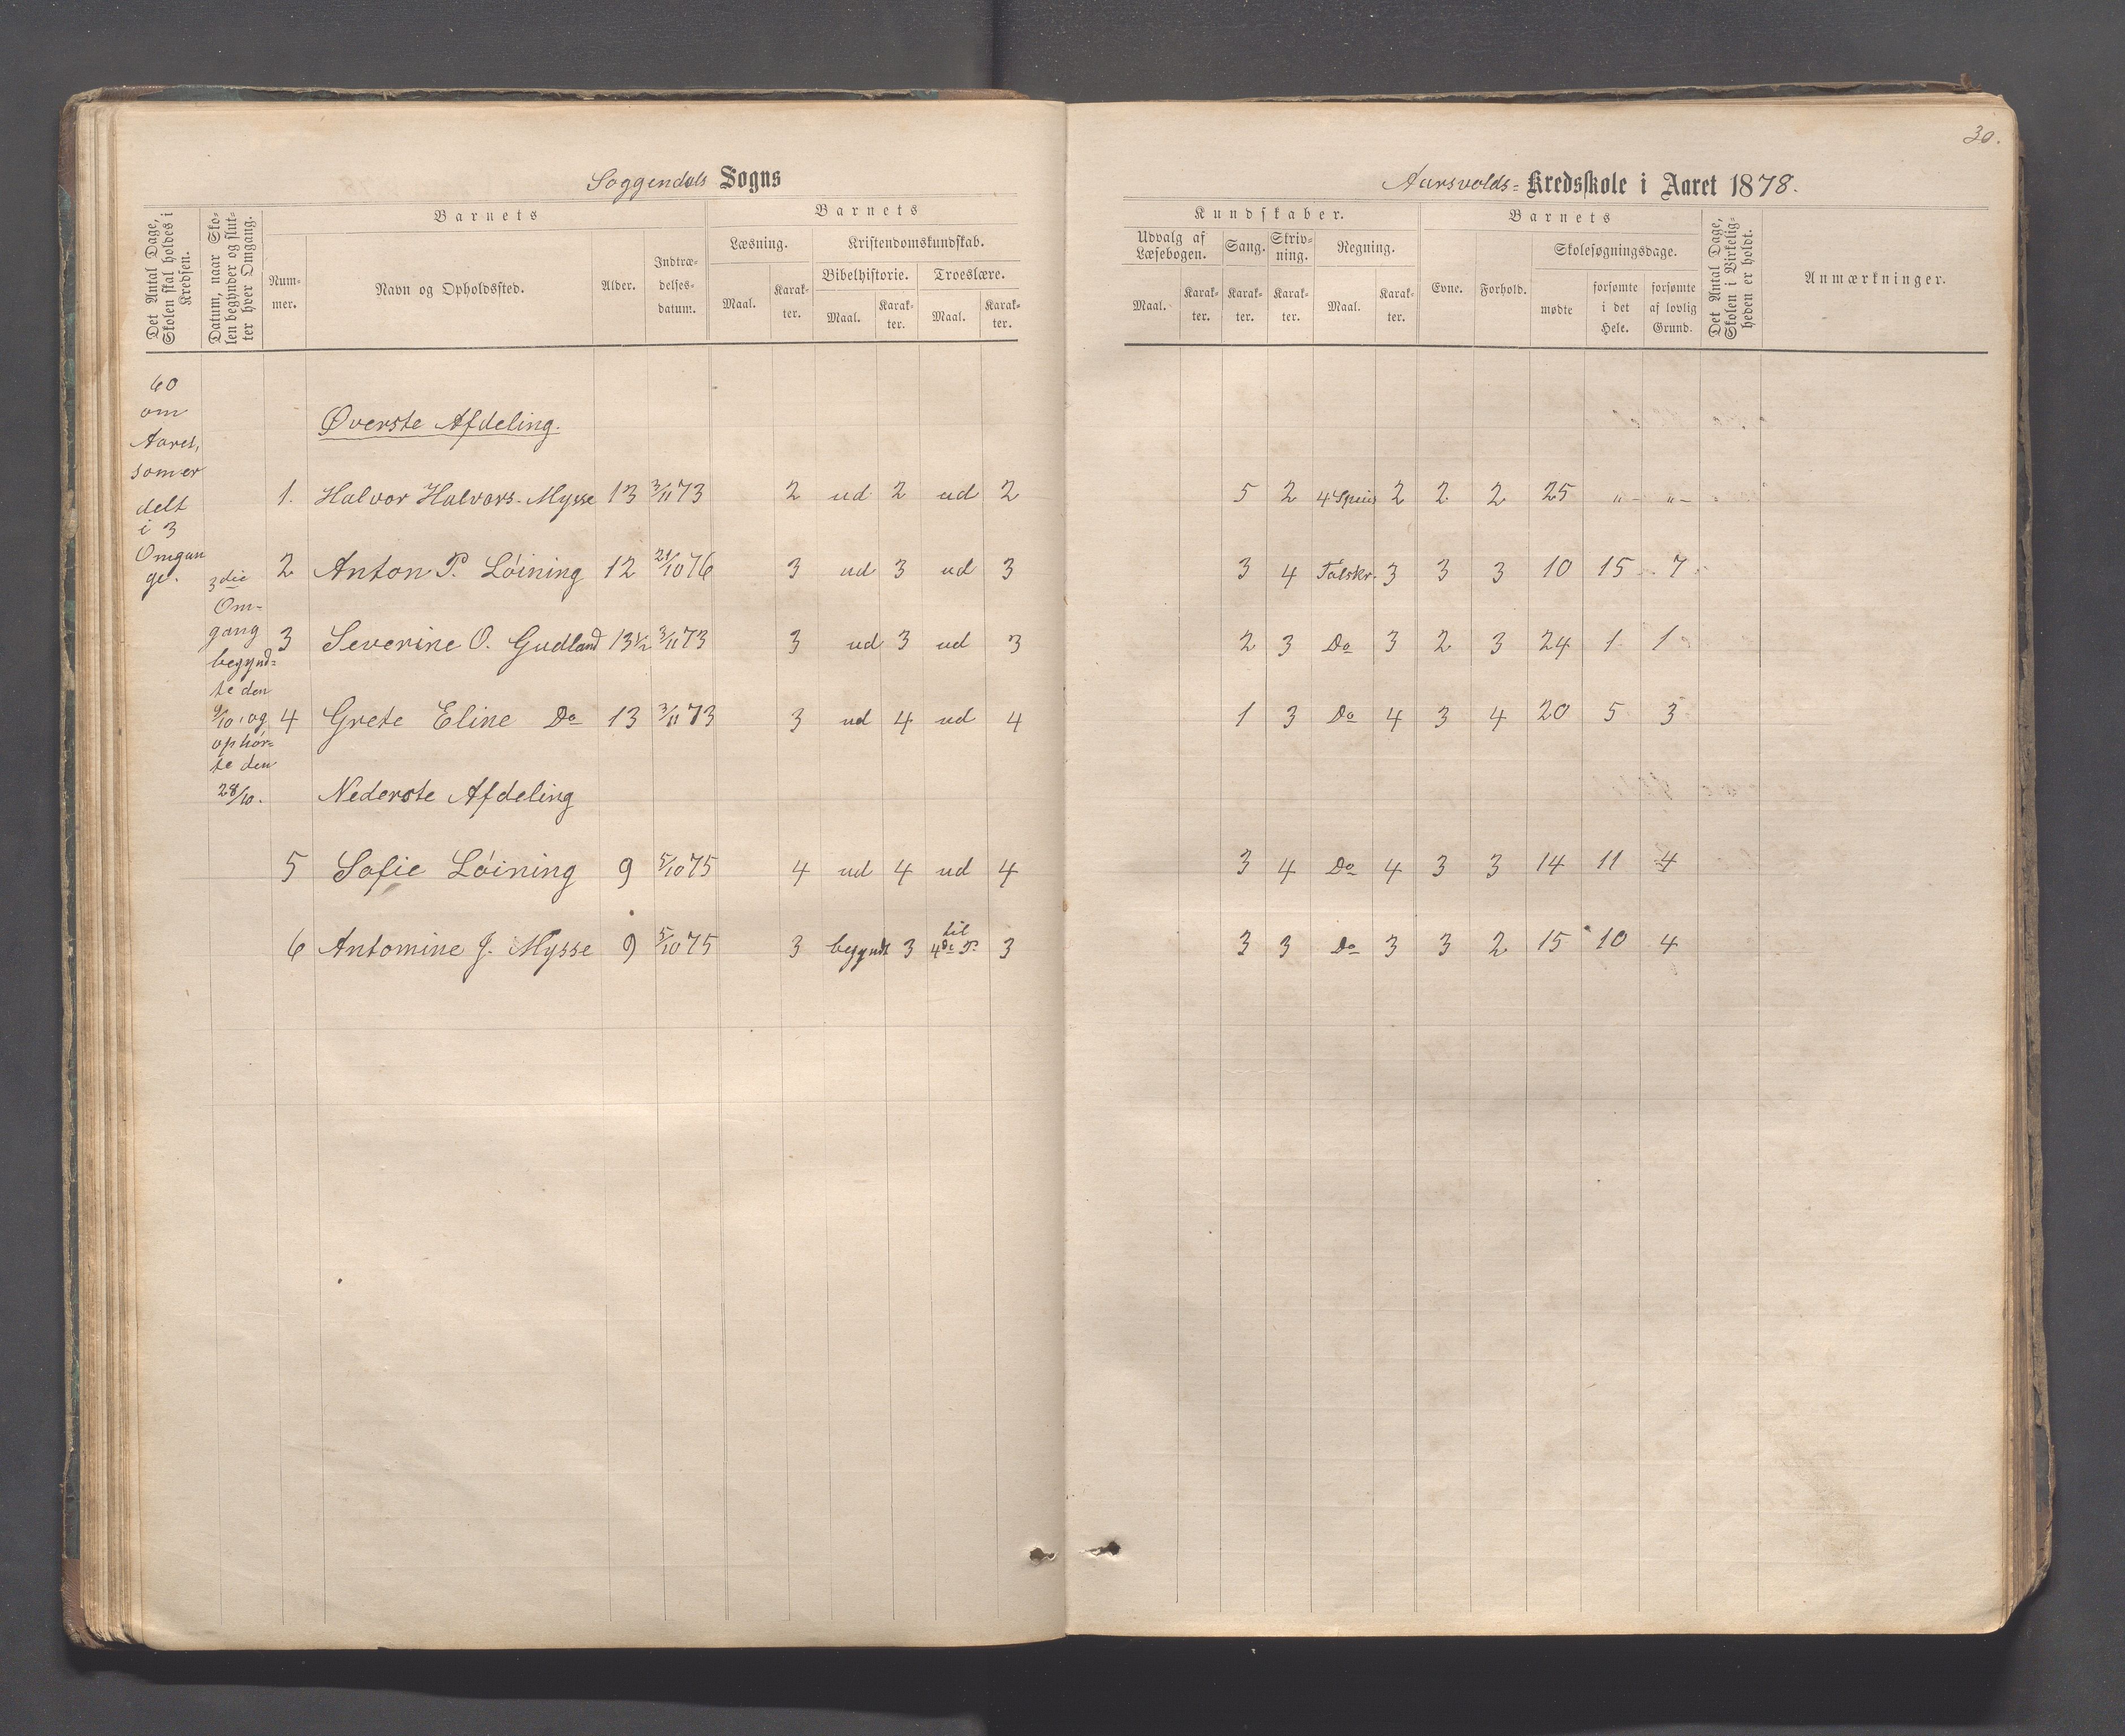 30.
Soggendals Sogns
Aarsvolds- Kredsskole i Aaret 1878.
Det Antal Dage, Skolen skal holdes i Kredsen.
Datum, naar Skolen begynder og slutter hver Omgang.
Barnets
Nummer.
Navn og Opholdssted.
Alder.
Indtrædelsesdatum.
Barnets
Læsning.
Maal.
Karakter.
Kristendomskundskab.
Bibelhistorie.
Maal.
Karakter.
Troeslære.
Maal.
Karakter.
Kundskaber.
Udvalg af Læsebogen.
Maal.
Karakter.
Sang.
Karakter.
Skrivning.
Karakter.
Regning.
Maal.
Karakter.
Barnets
Evne.
Forhold.
Skolesøgningsdage.
mødte
forsømte i det Hele.
forsømte af lovlig Grund.
Det Antal Dage, Skolen i Virkeligheden er holdt.
Anmærkninger.
60
om
Aaret,
som er
delt
i 3
Omgan
ge.
3die
Om-
gang
begynd-
te den
9/10, og
ophør-
te den
28/10.
Øverste Afdeling.
1. Halvor Halvors. Mysse 13 3/11 73 2 ud 2 ud 2 5 2 4 Spcies 2 2 2 25 „ – „ –
2 Anton P. Löining 12 21/10 76 3 ud 3 ud 3 3 4 Talskr. 3 3 3 10 15 7
3 Severine O. Gudland 13½ 3/11 73 3 ud 3 ud 3 2 3 Do 3 2 3 24 1 1
4 Grete Eline Do 13 3/11 73 3 ud 4 ud 4 1 3 Do 4 3 4 20 5 3
Nederste Afdeling
5 Sofie Löining 9 5/10 75 4 ud 4 ud 4 3 4 Do 4 3 3 14 11 4
6 Antomine J. Mysse 9 5/10 75 3 begyndt 3 til 4de P. 3 3 3 Do 3 3 2 15 10 4